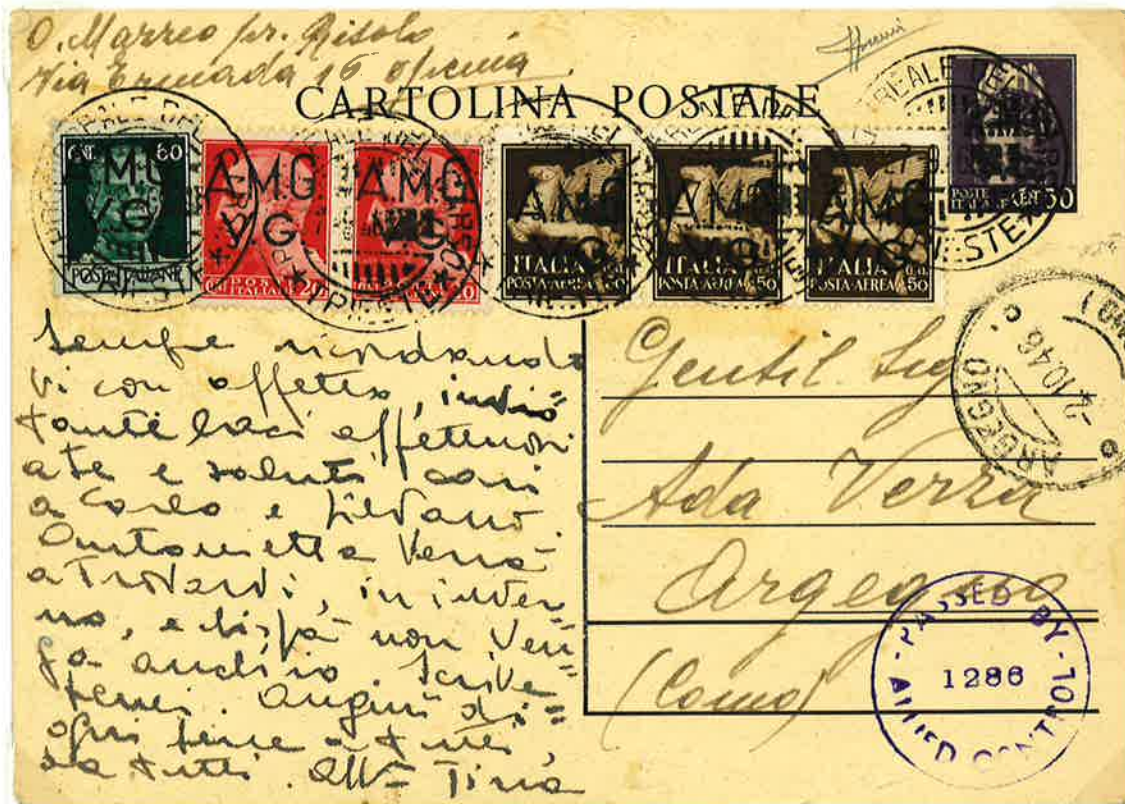 O. Marreo pr. Risolo
Via Ermada 16 officina
CARTOLINA POSTALE
CENT. 60
AMG
VG
POSTE ITALIANE
AMG
VG
POSTE ITALIANE
CENT. 20
AMG
VG
20
AMG
VG
ITALIA
POSTA AEREA c. 50
AMG
VG
ITALIA
POSTA AEREA c. 50
AMG
VG
ITALIA
POSTA AEREA c. 50
POSTE ITALIANE CENT 30
TRIESTE
ARGEGNO
2.10.46
Sempre ricordando
vi con affetto, invio
tanti baci affettuosi
e saluti cari
a Carlo e Silvano
Antonietta verrà
a trovarvi, in inver
no, e non ven=
ga anch'io. Scrive
temi. Auguri di
ogni bene a
da tutti. Tina
Gentil. Sig
Ada Verza
Argegno
(Como)
PASSED BY
1286
ALLIED CONTROL